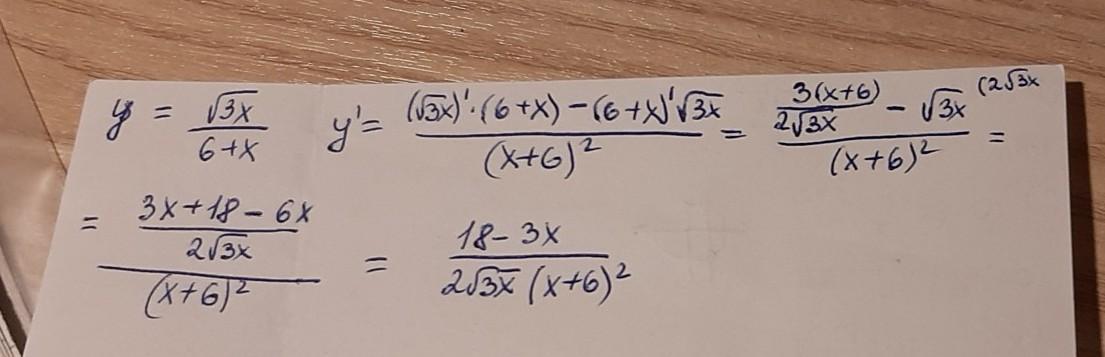 y = √3x / 6+x y' = (√3x)'·(6+x) – (6+x)'√3x / (x+6)² = 3(x+6) / 2√3x – √3x (2√3x / (x+6)² =
= 3x+18–6x / 2√3x / (x+6)² = 18–3x / 2√3x (x+6)²